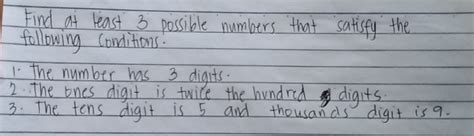 Find at least 3 possible numbers that satisfy the
following conditions.
1. The number has 3 digits.
2. The ones digit is twice the hundred digits.
3. The tens digit is 5 and thousands digit is 9.